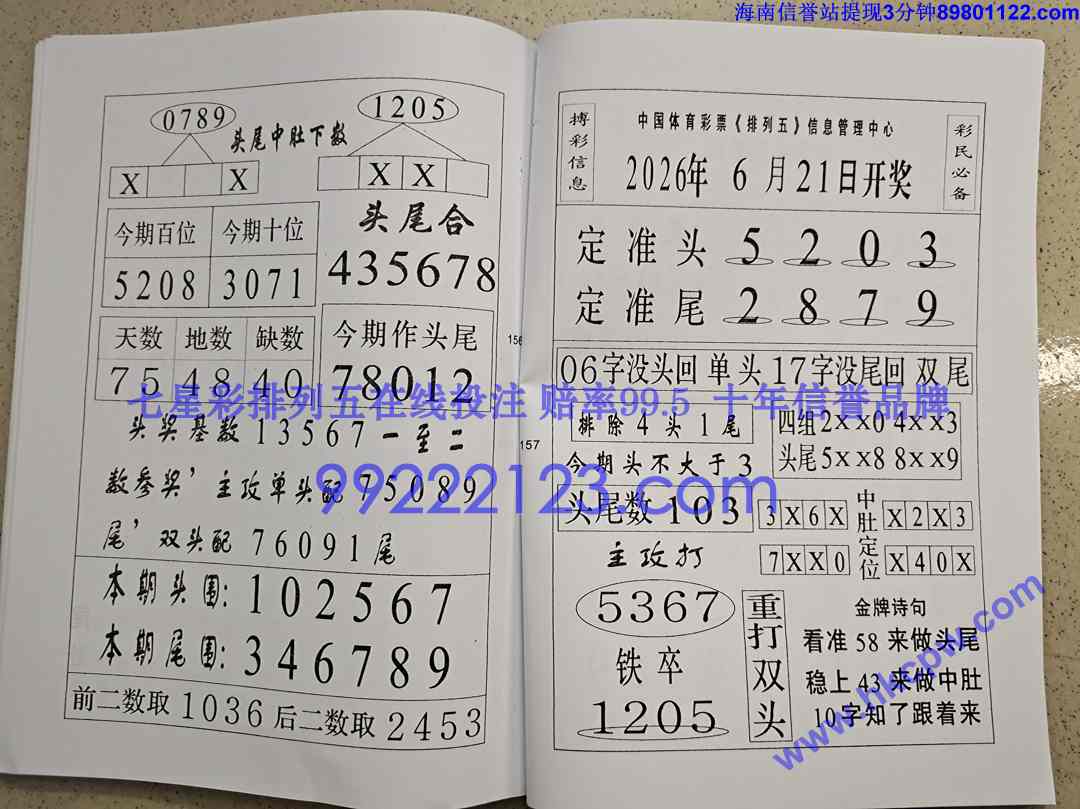 海南信誉站提现3分钟89801122.com
0789
1205
头尾中肚下数
X X
X X
头尾合
435678
今期百位 今期十位
5208 3071
天数 地数 缺数
75 48 40
今期作头尾
78012
头奖基数13567一至二
数参奖，主攻单头配75089
尾，双头配76091尾
本期头围：102567
本期尾围：346789
前二数取1036后二数取2453
156
157
搏彩信息
中国体育彩票《排列五》信息管理中心
2026年6月21日开奖
彩民必备
定准头 5 2 0 3
定准尾 2 8 7 9
06字没头回 单头 17字没尾回 双尾
排除4头1尾
今期头不大于3
四组2××0 4××3
头尾5××8 8××9
头尾数103
3X6X
中肚定位
X2X3
主攻打
7XX0
X40X
5367
铁卒
1205
重打双头
金牌诗句
看准58来做头尾
稳上43来做中肚
10字知了跟着来
七星彩排列五在线投注 赔率99.5 十年信誉品牌
99222123.com
www.hkcpw.com